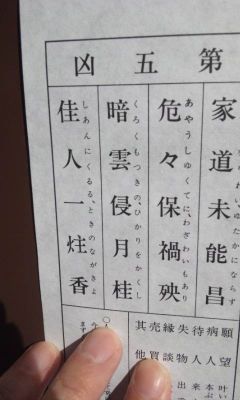 第五凶
家道未能昌
ゆたかにならず
危々保禍殃
あやうしゆくてに、わざわいもあり
暗雲侵月桂
くろくもつきの、ひかりをかくし
佳人一炷香
しあんにくるる、ときのながきよ
願望 叶い
病人 本ぶ
待人 来
失物 出
縁談
売買
其他